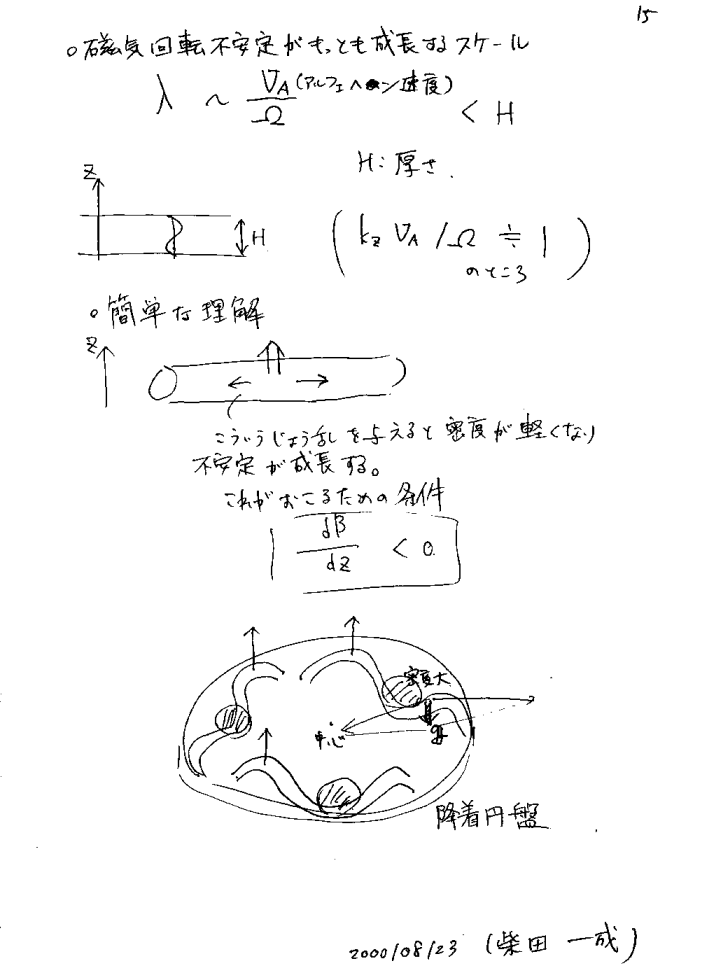 15
○磁気回転不安定がもっとも成長するスケール
λ ~ V_A/Ω (アルフェベン速度) < H
H: 厚さ.
z
H
( k_z V_A / Ω ≒ 1 )
のところ
○簡単な理解
z
こういうじょう乱を与えると密度が軽くなり
不安定が成長する。
これがおこるための条件
dβ/dz < 0
密度大
中心
g
降着円盤
2000/08/23 (柴田 一成)